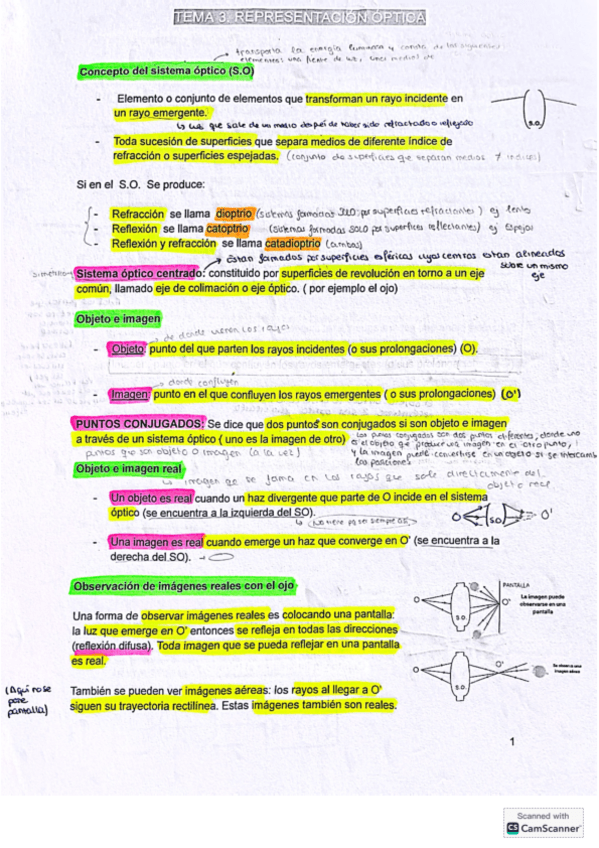 TEMA 3. REPRESENTACIÓN ÓPTICA
transporta la energía luminosa y consta de los siguientes
elementos: una fuente de luz, unos medios de
Concepto del sistema óptico (S.O)
- Elemento o conjunto de elementos que transforman un rayo incidente en
un rayo emergente.
luz que sale de un medio después de haber sido refractado o reflejado
S.O.
- Toda sucesión de superficies que separa medios de diferente índice de
refracción o superficies espejadas. (conjunto de superficies que separan medios ≠ índices)
Si en el S.O. Se produce:
- Refracción se llama dioptrio (sistemas formados SOLO por superficies refractantes) ej lente
- Reflexión se llama catoptrio (sistemas formados SOLO por superficies reflectantes) ej espejos
- Reflexión y refracción se llama catadioptrio (ambas)
Están formados por superficies esféricas cuyos centros están alineados
sobre un mismo
eje
Sistema óptico centrado: constituido por superficies de revolución en torno a un eje
común, llamado eje de colimación o eje óptico. ( por ejemplo el ojo)
Objeto e imagen
de donde vienen los rayos
- Objeto: punto del que parten los rayos incidentes (o sus prolongaciones) (O).
donde confluyen
- Imagen: punto en el que confluyen los rayos emergentes ( o sus prolongaciones) (O')
PUNTOS CONJUGADOS: Se dice que dos puntos son conjugados si son objeto e imagen
a través de un sistema óptico ( uno es la imagen de otro)
Los puntos conjugados son dos puntos diferentes, donde uno
es el objeto que produce una imagen en el otro punto,
y la imagen puede convertirse en un objeto si se intercamb
las posiciones
puntos que son objeto o imagen (a la vez)
Objeto e imagen real
imagen que se forma con los rayos que sale directamente del
objeto real
- Un objeto es real cuando un haz divergente que parte de O incide en el sistema
óptico (se encuentra a la izquierda del SO).
(No tiene pq ser siempre así)
O SO O'
- Una imagen es real cuando emerge un haz que converge en O' (se encuentra a la
derecha del SO).
Observación de imágenes reales con el ojo
PANTALLA
O S.O. O'
La imagen puede
observarse en una
pantalla
Una forma de observar imágenes reales es colocando una pantalla:
la luz que emerge en O' entonces se refleja en todas las direcciones
(reflexión difusa). Toda imagen que se pueda reflejar en una pantalla
es real.
O S.O. O'
Se observa una
imagen aérea
(Aquí no se
pone
pantalla)
También se pueden ver imágenes aéreas: los rayos al llegar a O'
siguen su trayectoria rectilínea. Estas imágenes también son reales.
1
Scanned with
CS CamScanner